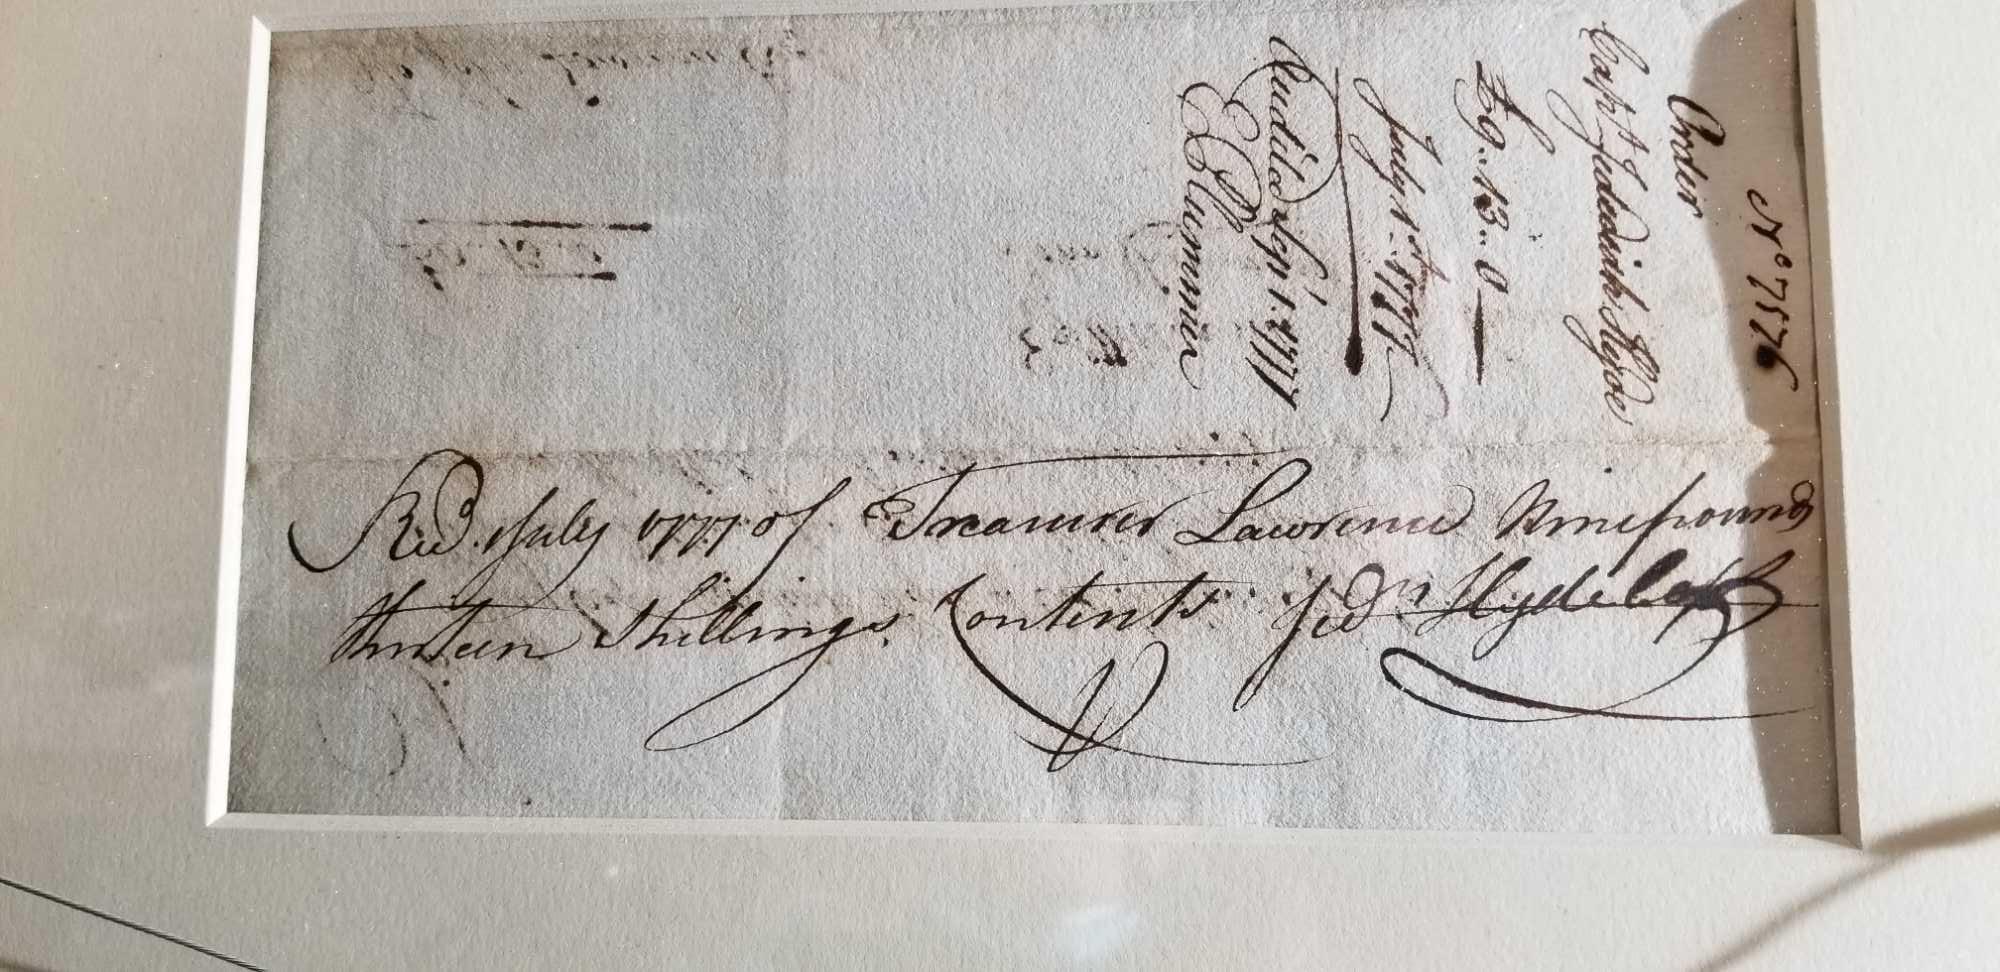 No 7576
Order
Capt Jedediah Hyde
£9..13..0
July 1st 1777
Audited Sep 1. 1777
E Plummer
Recd. July 1777 of Treasurer Lawrence Nine pounds
thirteen Shillings. Contents. Jedh Hyde Capt